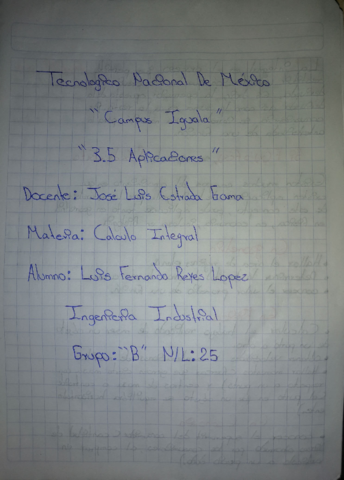 Tecnologico Nacional De México
"Campus Iguala"
"3.5 Aplicaciones"
Docente: José Luis Estrada Gama
Materia: Calculo Integral
Alumno: Luis Fernando Reyes Lopez
Ingenieria Industrial
Grupo: "B" N/L: 25